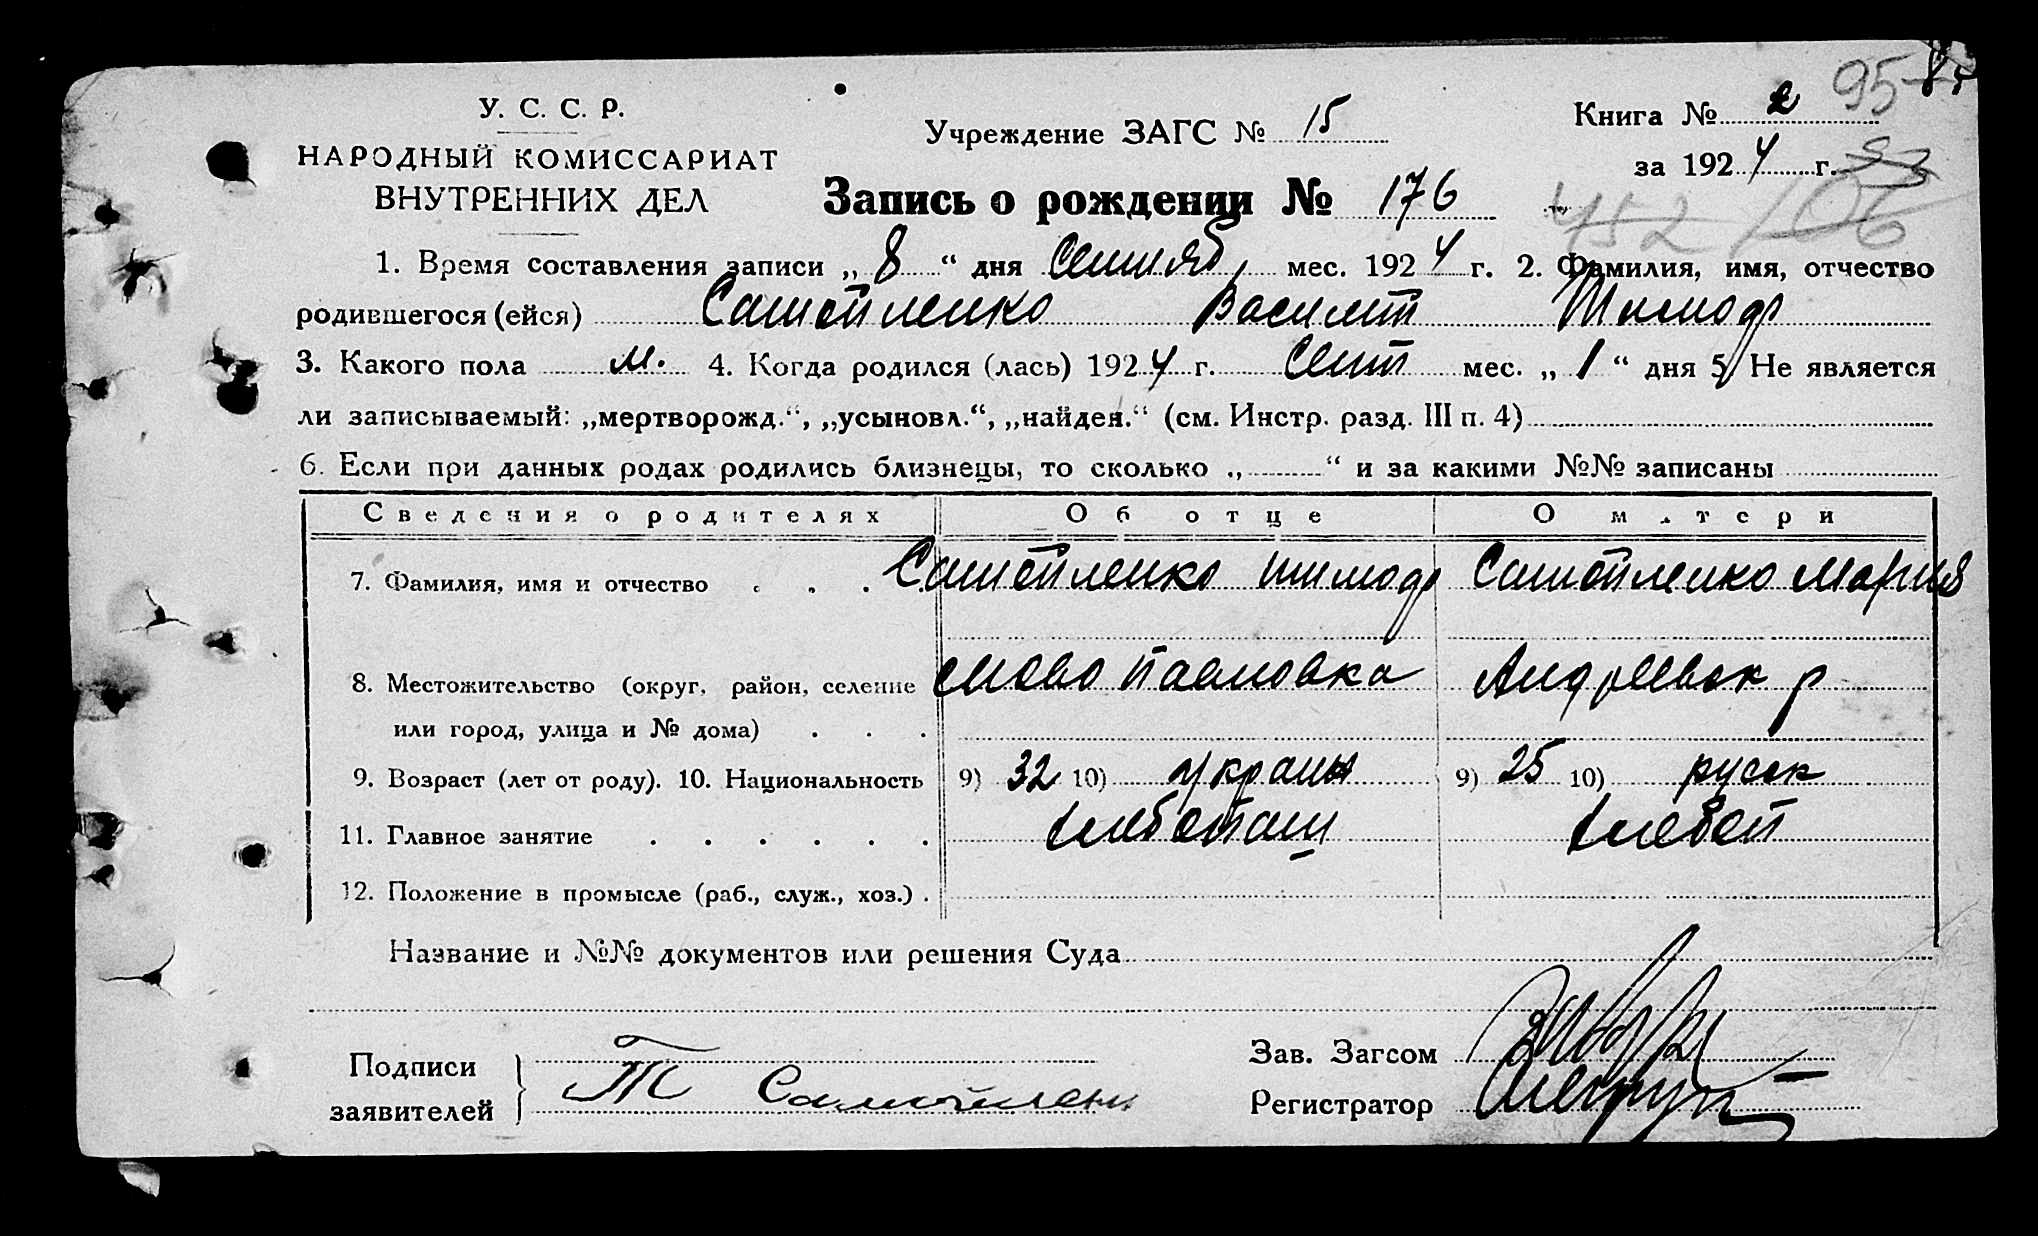 95
У. С. С. Р.
НАРОДНЫЙ КОМИССАРИАТ
ВНУТРЕННИХ ДЕЛ
Учреждение ЗАГС № 15
Книга № 2
за 1924 г. 53
Запись о рождении № 176
452 106
1. Время составления записи „ 8 “ дня Сентяб мес. 1924 г. 2. Фамилия, имя, отчество
родившегося (ейся) Самойленко Василий Тимоф
3. Какого пола м. 4. Когда родился (лась) 1924 г. Сент мес. „ 1 “ дня 5. Не является
ли записываемый: „мертворожд.“, „усыновл.“, „найден.“ (см. Инстр. разд. III п. 4)
6. Если при данных родах родились близнецы, то сколько „ “ и за какими №№ записаны
Сведения о родителях Об отце О матери
7. Фамилия, имя и отчество Самойленко Тимоф Самойленко Мария
8. Местожительство (округ, район, селение Ново Павловка Андреевск р
или город, улица и № дома)
9. Возраст (лет от роду). 10. Национальность 9) 32 10) украин 9) 25 10) русск
11. Главное занятие хлебопаш хлебоп
12. Положение в промысле (раб., служ., хоз.)
Название и №№ документов или решения Суда
Подписи
заявителей Т Самойлен
Зав. Загсом
Регистратор